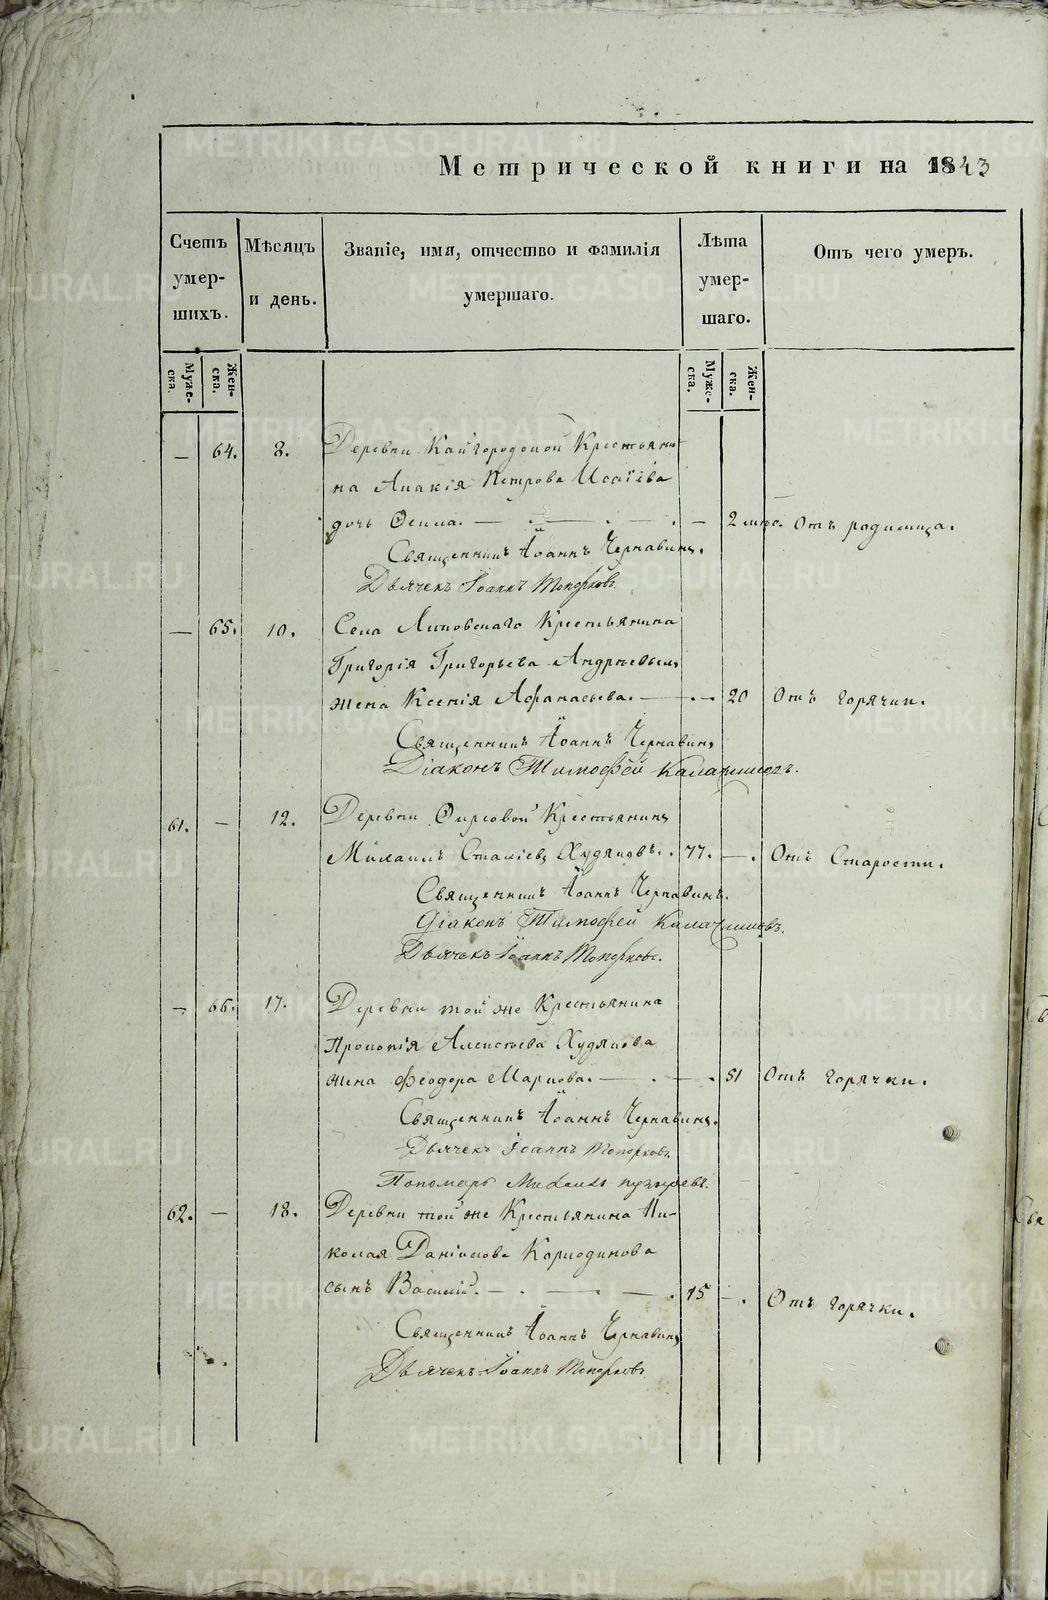 Метрической книги на 1843
Счетъ умер-шихъ.
Мѣсяцъ и день.
Званіе, имя, отчество и фамилія умершаго.
Лѣта умер-шаго.
Отъ чего умеръ.
Муже-ска.
Жен-ска.
Муже-ска.
Жен-ска.
— 64. 8. Деревни Кайгородовой Крестьяни-
на Акакія Петрова Исаіева
дочь Фекла. — . — . — . — 2 мѣс. Отъ родимца.
Священникъ Іоаннъ Чернавинъ.
Дьячекъ Іоаннъ Топорковъ.
— 65. 10. Села Липовскаго Крестьянина
Григорія Григорьева Андреевыхъ
жена Ксенія Афанасьева. — . — 20 Отъ горячки.
Священникъ Іоаннъ Чернавинъ
Діаконъ Тимофей Калашниковъ.
61. — 12. Деревни Фирсовой Крестьянинъ
Михаилъ Стахіевъ Худяковъ. . 77. — . Отъ Старости.
Священникъ Іоаннъ Чернавинъ.
Діаконъ Тимофей Калашниковъ.
Дьячекъ Іоаннъ Топорковъ.
— 66. 17. Деревни той же Крестьянина
Прокопія Алексѣева Худякова
жена Феодора Маркова. — . — . 51 Отъ горячки.
Священникъ Іоаннъ Чернавинъ.
Дьячекъ Іоаннъ Топорковъ.
Пономарь Михаилъ
62. — 18. Деревни той же Крестьянина Ни-
колая Даніилова Кориодинова
сынъ Василій. — . — . — . 15 — . Отъ горячки.
Священникъ Іоаннъ Чернавинъ
Дьячекъ Іоаннъ Топорковъ.
METRIKI.GASO-URAL.RU